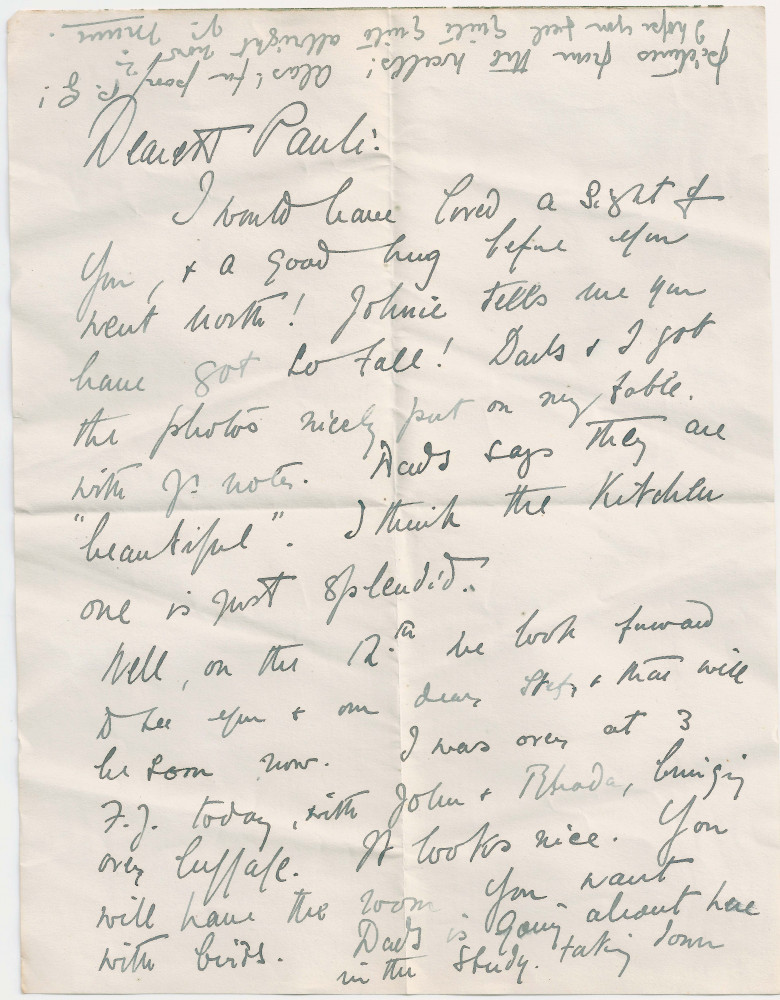 Dearest Pauli:
I would have loved a sight of
you, & a good hug before you
went north! Johnie tells me you
have got so tall! Dads & I got
the photos nicely put on my table.
with yr. notes. Dads says they are
"beautiful". I think the Kitchen
one is just splendid.
Well, on the 12.th we look forward
to see you & our dear & that will
be soon now. I was over at 3
F.J. today, with John & Rhoda, bringing
over luggage. It looks nice. You
will have the room you want
with birds. Dads is going about here
in the study. taking down
pictures from the walls! Alas! for poor P.G!
I hope you feel quite allright now? Yr. Mum.